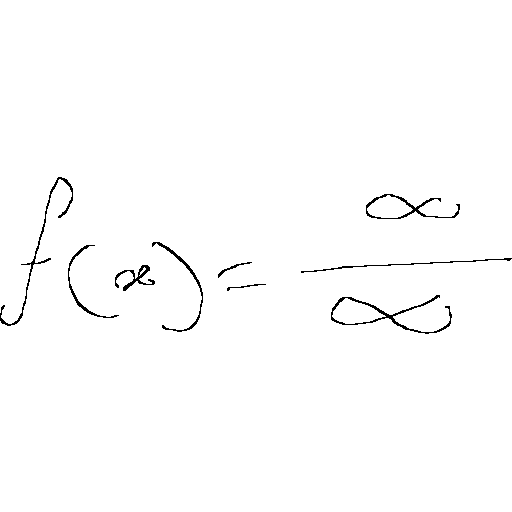 f(x) = ∞/∞